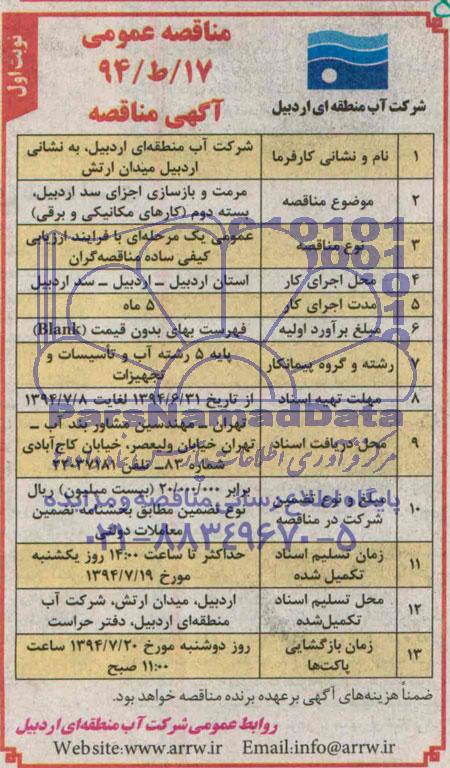 مناقصه عمومی
۹۴/ط/۱۷
آگهی مناقصه
نوبت اول
شرکت آب منطقه ای اردبیل
۱ نام و نشانی کارفرما شرکت آب منطقه‌ای اردبیل، به نشانی
اردبیل میدان ارتش
۲ موضوع مناقصه مرمت و بازسازی اجزای سد اردبیل،
بسته دوم (کارهای مکانیکی و برقی)
۳ نوع مناقصه عمومی یک مرحله‌ای با فرایند ارزیابی
کیفی ساده مناقصه‌گران
۴ محل اجرای کار استان اردبیل ـ اردبیل ـ سد اردبیل
۵ مدت اجرای کار ۵ ماه
۶ مبلغ برآورد اولیه فهرست بهای بدون قیمت (Blank)
۷ رشته و گروه پیمانکار پایه ۵ رشته آب و تأسیسات و
تجهیزات
۸ مهلت تهیه اسناد از تاریخ ۱۳۹۴/۶/۳۱ لغایت ۱۳۹۴/۷/۸
۹ محل دریافت اسناد تهران ـ مهندسین مشاور بند آب ـ
تهران خیابان ولیعصر، خیابان کاج‌آبادی
شماره ۸۳ـ تلفن ۲۲۰۳۷۱۸۱
۱۰ مبلغ و نوع تضمین برابر ۲۰/۰۰۰/۰۰۰ (بیست میلیون) ریال
شرکت در مناقصه نوع تضمین مطابق بخشنامه تضمین
معاملات دولتی
۱۱ زمان تسلیم اسناد حداکثر تا ساعت ۱۴:۰۰ روز یکشنبه
تکمیل شده مورخ ۱۳۹۴/۷/۱۹
۱۲ محل تسلیم اسناد اردبیل، میدان ارتش، شرکت آب
تکمیل‌شده منطقه‌ای اردبیل، دفتر حراست
۱۳ زمان بازگشایی روز دوشنبه مورخ ۱۳۹۴/۷/۲۰ ساعت
پاکت‌ها ۱۱:۰۰ صبح
ضمناً هزینه‌های آگهی برعهده برنده مناقصه خواهد بود.
روابط عمومی شرکت آب منطقه‌ای اردبیل
Website:www.arrw.ir Email:info@arrw.ir
ParsNamadData
پایگاه اطلاع رسانی مناقصه و مزایده
۰۲۱-۸۸۳۴۹۶۷۰-۵